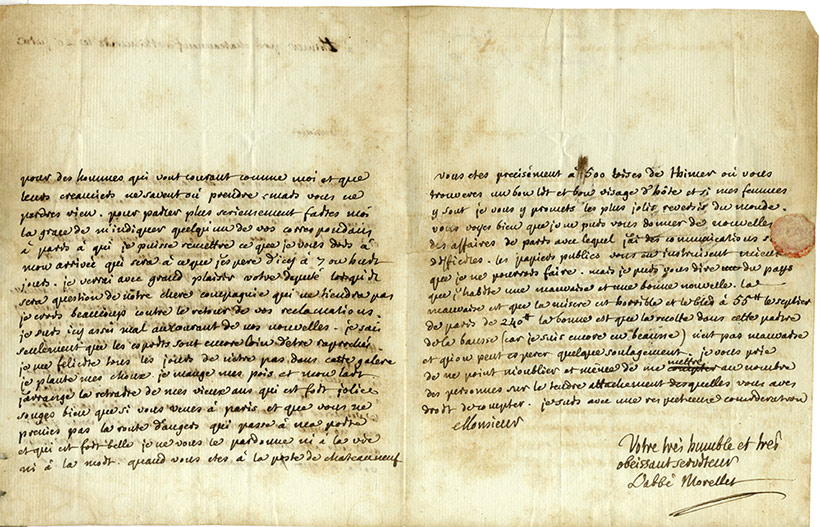 pour des hommes qui vont courant comme moi et que
leurs creanciers ne savent où prendre. mais vous ne
perdres rien. pour parler plus serieusement faittes moi
la grace de m'indiquer quelqu'un de vos correspondans
à paris à qui je puisse remettre ce que je vous dois à
mon arrivée qui sera à ce que j'espere d'icy à 7 ou huit
jours. je verrai avec grand plaisir votre deputé lorsqu'il
sera question de nôtre chere compagnie qui ne tiendra pas
je crois beaucoup contre le retour de vos reclamations.
je suis icy assés mal au courant de nos nouvelles. je sais
seulement que les esprits sont encore loin d'etre rapprochés
je me felicite tous les jours de n'etre pas dans cette galere
je plante mes choux je mange mes pois et mon lard
j'arrange la retraite de mes vieux ans qui est fort jolie
songés bien que si vous venes à paris et que vous ne
preniés pas la route d'angers qui passe à ma porte
et qui est fort belle je ne vous le pardonne ni à la vie
ni à la mort. quand vous etes à la poste de châteauneuf
vous etes precisément à 500 toises de Thimer où vous
trouveres un bon lit et bon visage d'hôte et si mes femmes
y sont je vous y promets les plus jolis reversis du monde.
vous voyes bien que je ne puis vous donner de nouvelles
des affaires de paris avec lequel j'ai des communications
difficiles. les papiers publics vous en instruisent mieux
que je ne pourrois faire. mais je puis vous dire du pays
que j'habite une mauvaise et une bonne nouvelle. la
mauvaise est que la misere est horrible et le bled à 55 tt le septier
de paris de 240 tt la bonne est que la recolte dans cette partie
de la bausse (car je suis encore en beausse) n'est pas mauvaise
et qu'on peut esperer quelque soulagement. je vous prie
de ne point m'oublier et même de me mettre au nombre
des personnes sur le tendre attachement desquelles vous aves
droit de compter. je suis avec une respectueuse consideration
Monsieur
Votre très humble et très
obeissant serviteur
L'abbé Morellet